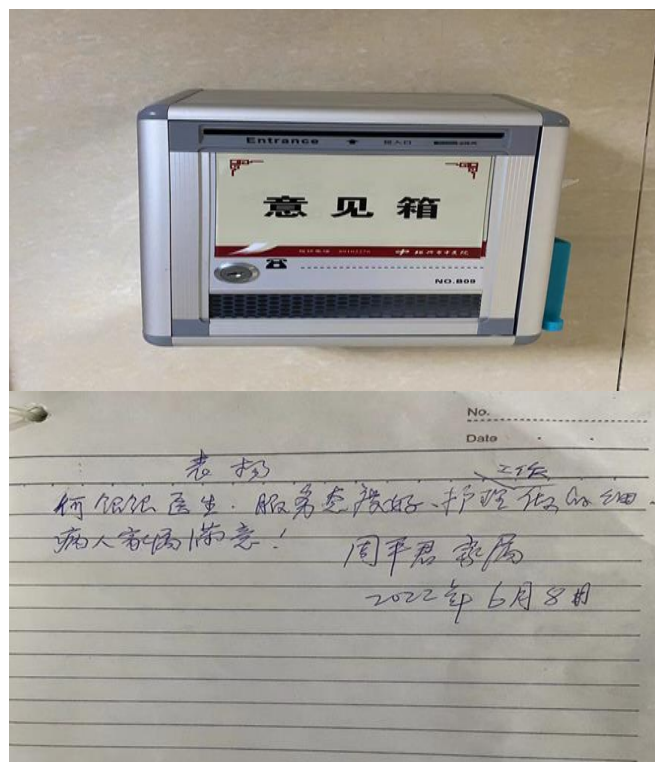 Entrance 投入口
意见箱
NO.B09
No.
Date
表扬
何银银医生.服务态度好、护理工作做的细.
病人家属满意!
周平君家属
2022年6月8日